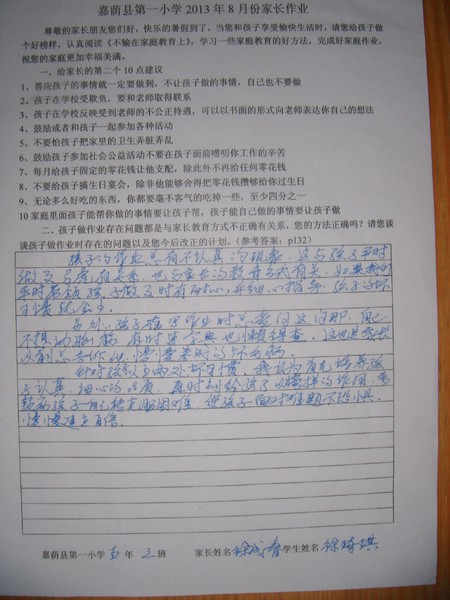 嘉荫县第一小学 2013 年 8 月份家长作业
尊敬的家长朋友您们好，快乐的暑假到了，当您和孩子享受愉快生活时，请您给孩子做
个好榜样，认真阅读《不输在家庭教育上》，学习一些家庭教育的好方法，完成好家庭作业，
祝您的家庭更加幸福美满。
一、给家长的第二个 10 点建议
1、答应孩子的事情就一定要做到，不让孩子做的事情，自己也不要做
2、孩子在学校受欺负，要和老师取得联系
3、孩子在学校反映受到老师的不公正待遇，可以以书面的形式向老师表达你自己的想法
4、鼓励或者和孩子一起参加各种活动
5、不要怕孩子把家里的卫生弄脏弄乱
6、鼓励孩子参加社会公益活动不要在孩子面前唠叨你工作的辛苦
7、每月给孩子固定的零花钱让他支配，除此外不再给任何零花钱
8、不要给孩子搞生日宴会，除非他能够舍得把零花钱攒够给你过生日
9、无论多么好吃的东西，你都要毫不客气的吃掉一些，至少四分之一
10 家庭里面孩子能帮你做的事情要让孩子帮，孩子能自己做的事情要让孩子做
二、孩子做作业时存在的问题都是与家长教育方式不正确有关系，您的方法正确吗？请您谈
谈孩子做作业时存在的问题以及您今后改正的计划。（参考答案：p132）
孩子的作业总有不认真的现象，这与孩子平时
做事习惯有关系，也与家长的教育方式有关。如果我们
平时带领孩子做事时有耐心，并细心指导，孩子的坏
习惯就会
另外，孩子在写作业时总爱问这问那，自己
不想动脑筋，有时连字典也懒得查，这也是家长
以前总告诉他，慢慢养成的坏毛病。
针对孩子以上两处坏习惯，我认为首先培养孩
子认真、细心的品质，再时刻给孩子以榜样的作用，
孩子自己克服困难，使孩子面对难题不恐惧，
慢慢建立自信。
嘉荫县第一小学 五 年 三 班 家长姓名 徐 学生姓名 徐琦琪